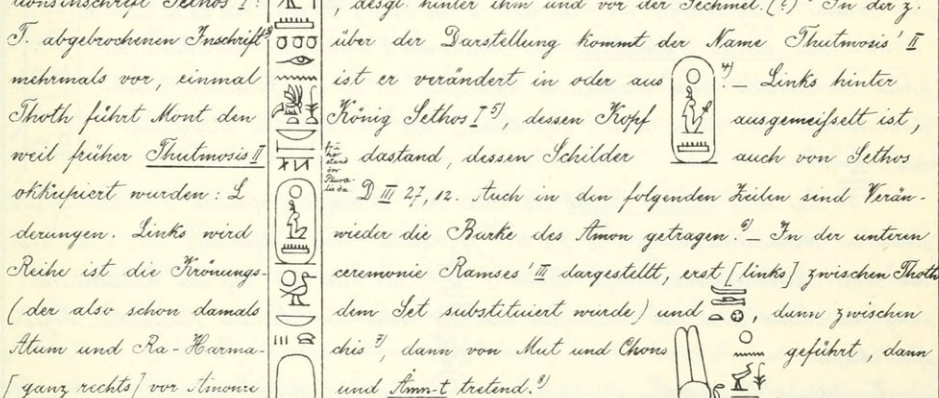 tionsinschrift Sethos I: , desgl. hinter ihm und vor der Sechmet. (?) In der z.
T. abgebrochenen Inschrift über der Darstellung kommt der Name Thutmosis' II
mehrmals vor, einmal ist er verändert in oder aus 4) – Links hinter
Thoth führt Mont den König Sethos I 5), dessen Kopf ausgemeißelt ist,
weil früher Thutmosis II dastand, dessen Schilder auch von Sethos
okkupiert wurden: L D III 27, 12. Auch in den folgenden Zeilen sind Verän-
derungen. Links wird wieder die Barke des Amon getragen. 6) – In der unteren
Reihe ist die Krönungs- ceremonie Ramses' III dargestellt, erst [links] zwischen Thoth
(der also schon damals dem Set substituiert wurde) und , dann zwischen
Atum und Ra-Harma- chis 7), dann von Mut und Chons geführt, dann
[ganz rechts] vor Amonre und Amn-t tretend. 8)